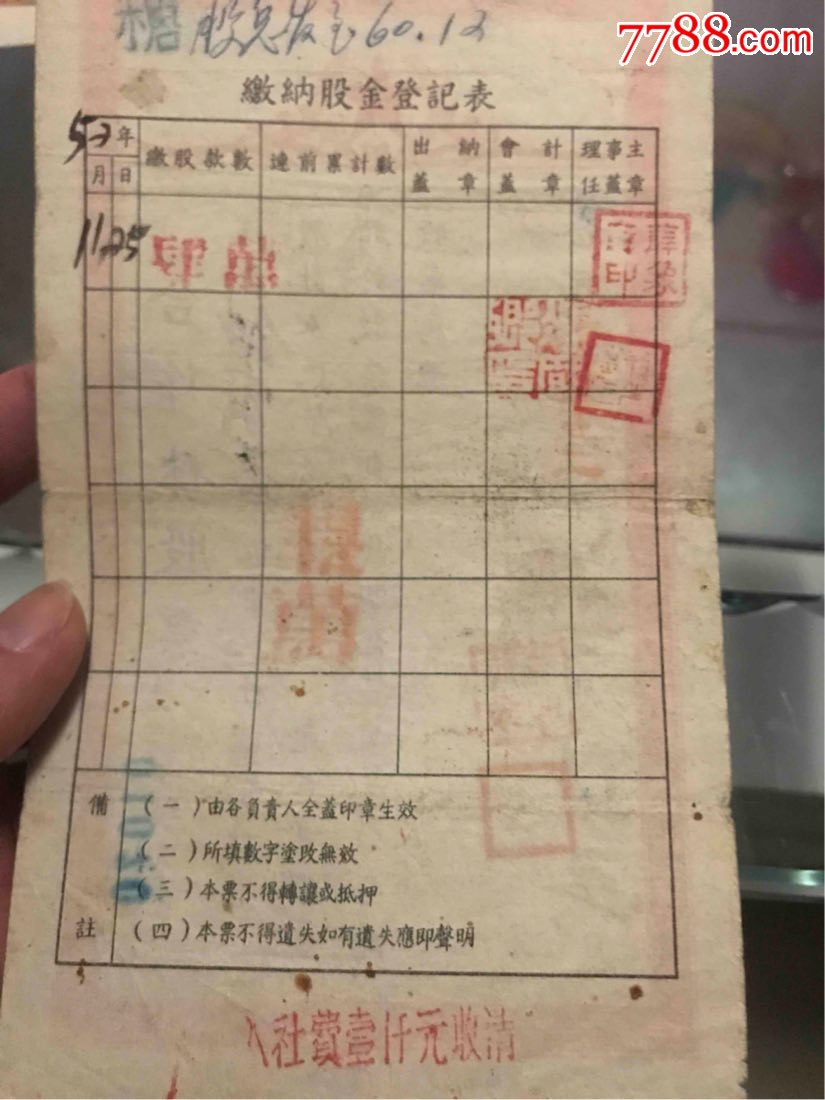 7788.com
股息发至60.12
繳納股金登記表
53年
月 日
繳股款數
連前累計數
出納蓋章
會計蓋章
理事主任蓋章
11 25
肆萬
肆萬
備註
(一)由各負責人全蓋印章生效
(二)所填數字塗改無效
(三)本票不得轉讓或抵押
(四)本票不得遺失如有遺失應即聲明
入社費壹仟元收清